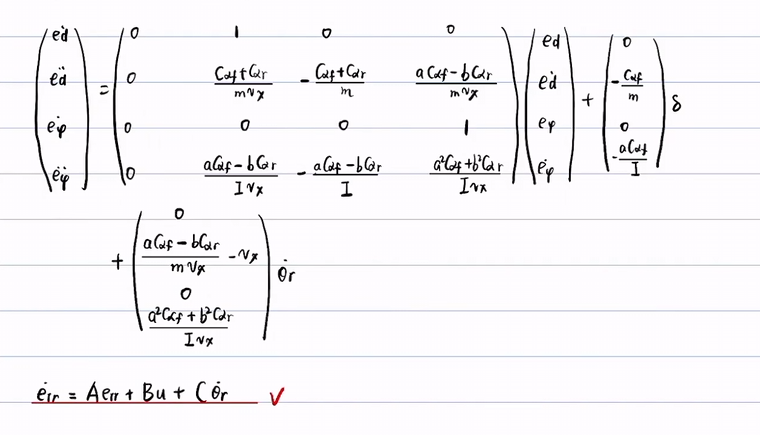 (ėd ëd ėφ ëφ) = (0 1 0 0
0 (Cαf+Cαr)/(mvx) -(Cαf+Cαr)/m (aCαf-bCαr)/(mvx)
0 0 0 1
0 (aCαf-bCαr)/(Ivx) -(aCαf-bCαr)/I (a²Cαf+b²Cαr)/(Ivx)) (ed ėd eφ ėφ) + (0 -Cαf/m 0 -aCαf/I) δ
+ (0 (aCαf-bCαr)/(mvx) -vx 0 (a²Cαf+b²Cαr)/(Ivx)) θ̇r
ėrr = Aerr + Bu + Cθ̇r ✓